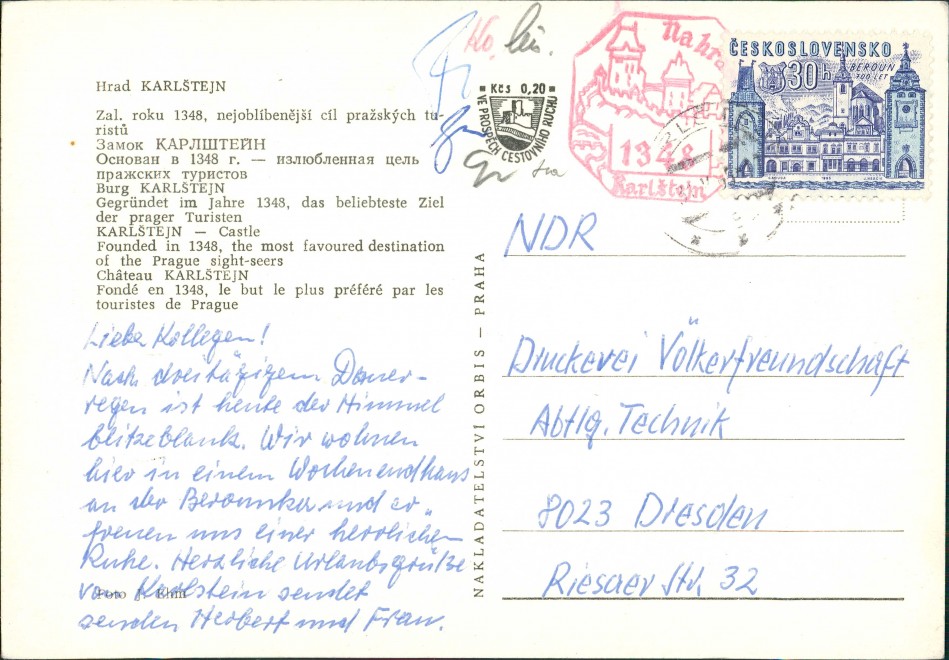 Hrad KARLŠTEJN
Zal. roku 1348, nejoblíbenější cíl pražských tu-
ristů
Замок КАРЛШТЕЙН
Основан в 1348 г. — излюбленная цель
пражских туристов
Burg KARLŠTEJN
Gegründet im Jahre 1348, das beliebteste Ziel
der prager Turisten
KARLŠTEJN — Castle
Founded in 1348, the most favoured destination
of the Prague sight-seers
Château KARLŠTEJN
Fondé en 1348, le but le plus préféré par les
touristes de Prague
Liebe Kollegen!
Nach dreitägigem Dauer-
regen ist heute der Himmel
blitzeblank. Wir wohnen
hier in einem Wochenendhaus
an der Berounka und er-
freuen uns einer herrlichen
Ruhe. Herzliche Urlaubsgrüße
von Karlstein sendet
senden Herbert und Frau.
Foto J. Ehm
NAKLADATELSTVÍ ORBIS — PRAHA
Kčs 0,20
VE PROSPĚCH CESTOVNÍHO RUCHU
Na hra
1348
Karlštejn
ČESKOSLOVENSKO
BEROUN
700 LET
30h
1965
NDR
Druckerei Völkerfreundschaft
Abtlg. Technik
8023 Dresden
Riesaer Str. 32